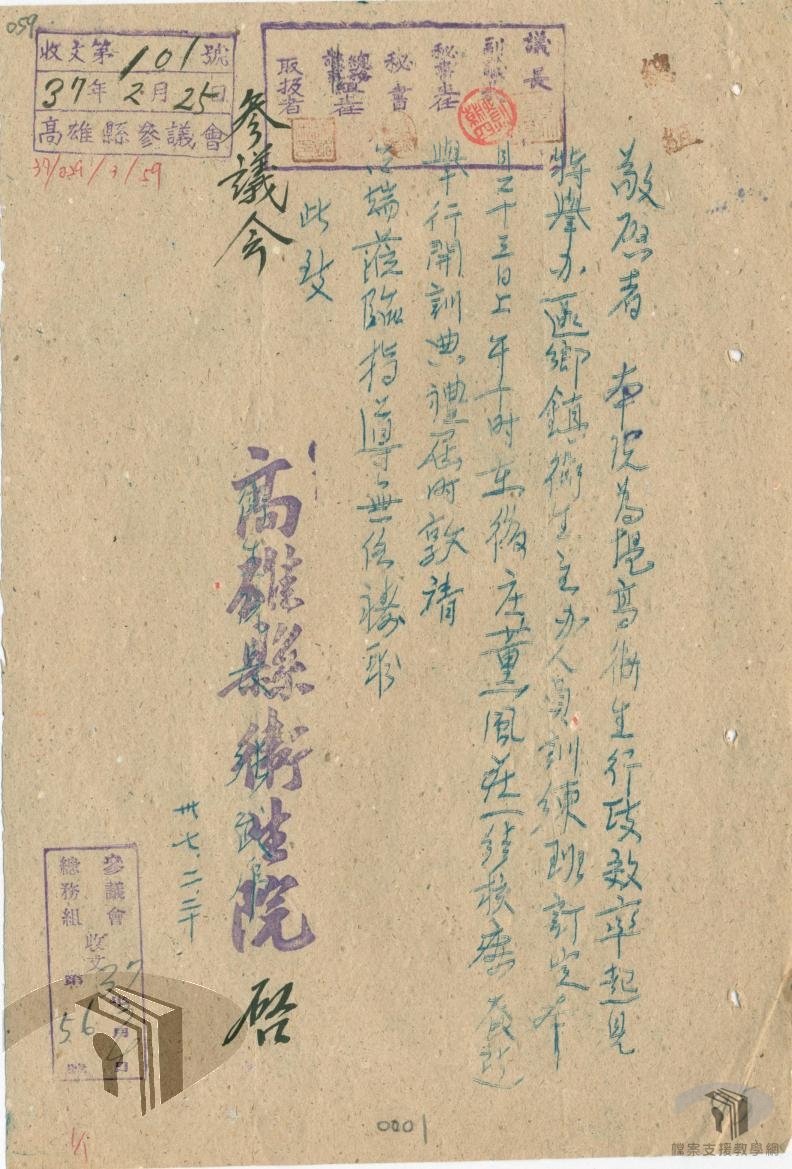 059
收文第101號
37年2月25日
高雄縣參議會
37/029/1/59
議長
副議長
秘書主任
秘書
總務組主任
取扱者
敬啓者 本院為提高衛生行政效率起見
特舉办區鄉鎮衛生主办人員訓練班訂定本
月二十三日上午十时在後庄薰風莊結核療養所
舉行開訓典禮屆时敦請
台端蒞臨指導無任禱盼
此致
參議会
高雄縣衛生院 啓
卅七.二.二十
參議會
總務組
收文
第56號
0001
檔案支援教學網